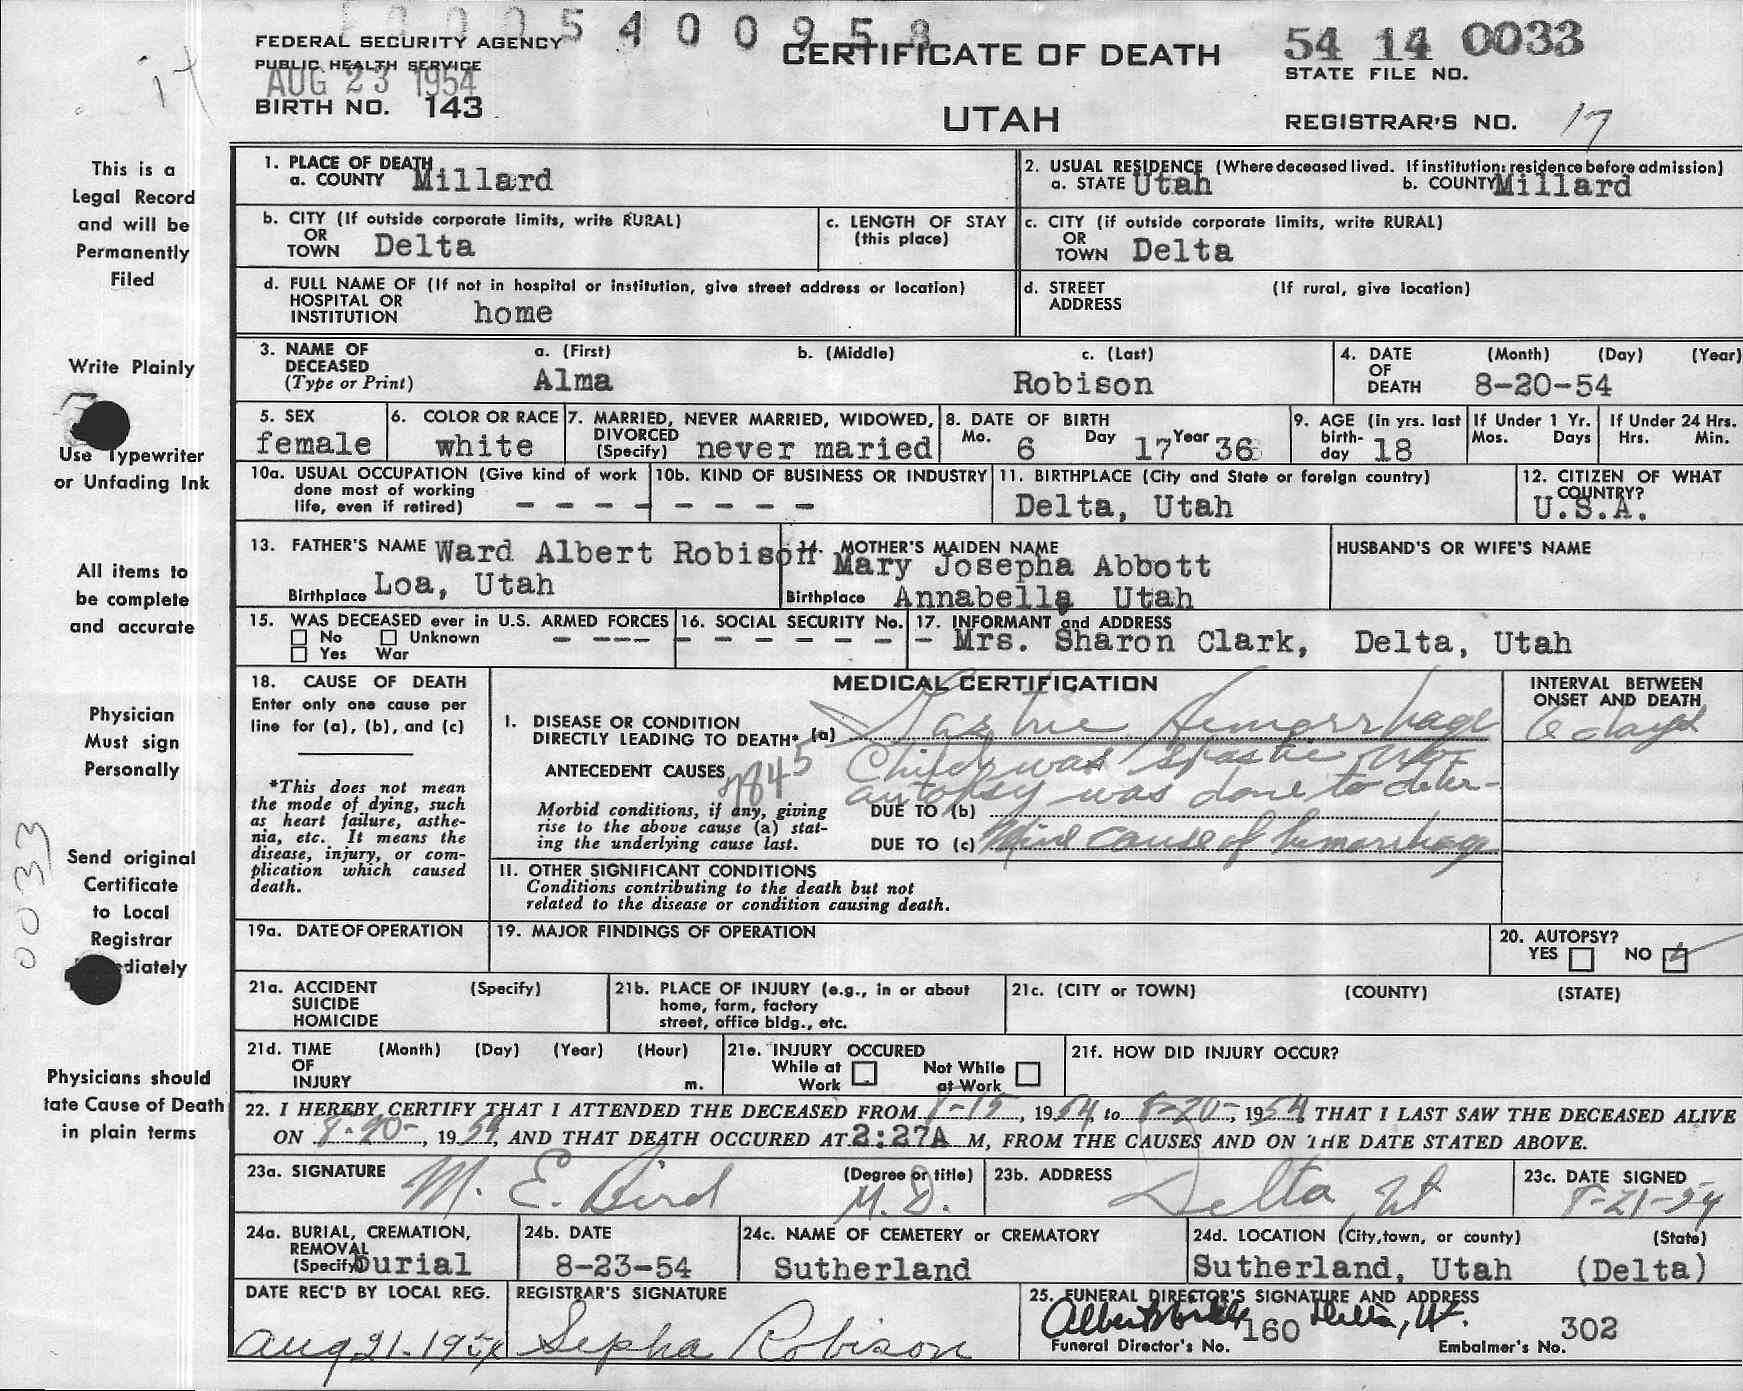 5400958
FEDERAL SECURITY AGENCY
PUBLIC HEALTH SERVICE
AUG 23 1954
BIRTH NO. 143
CERTIFICATE OF DEATH
UTAH
54 14 0033
STATE FILE NO.
REGISTRAR'S NO. 17
This is a
Legal Record
and will be
Permanently
Filed
Write Plainly
Use Typewriter
or Unfading Ink
All items to
be complete
and accurate
Physician
Must sign
Personally
Send original
Certificate
to Local
Registrar
diately
Physicians should
tate Cause of Death
in plain terms
0033
1. PLACE OF DEATH
a. COUNTY Millard
2. USUAL RESIDENCE (Where deceased lived. If institution: residence before admission)
a. STATE Utah b. COUNTY Millard
b. CITY (If outside corporate limits, write RURAL)
OR
TOWN Delta
c. LENGTH OF STAY
(this place)
c. CITY (if outside corporate limits, write RURAL)
OR
TOWN Delta
d. FULL NAME OF (If not in hospital or institution, give street address or location)
HOSPITAL OR
INSTITUTION home
d. STREET (If rural, give location)
ADDRESS
3. NAME OF
DECEASED
(Type or Print)
a. (First) b. (Middle) c. (Last)
Alma Robison
4. DATE (Month) (Day) (Year)
OF
DEATH 8-20-54
5. SEX
female
6. COLOR OR RACE
white
7. MARRIED, NEVER MARRIED, WIDOWED,
DIVORCED
(Specify) never maried
8. DATE OF BIRTH
Mo. 6 Day 17 Year 36
9. AGE (in yrs. last
birth-
day 18
If Under 1 Yr.
Mos. Days
If Under 24 Hrs.
Hrs. Min.
10a. USUAL OCCUPATION (Give kind of work
done most of working
life, even if retired) - - - -
10b. KIND OF BUSINESS OR INDUSTRY
- - - -
11. BIRTHPLACE (City and State or foreign country)
Delta, Utah
12. CITIZEN OF WHAT
COUNTRY?
U.S.A.
13. FATHER'S NAME Ward Albert Robison
Birthplace Loa, Utah
14. MOTHER'S MAIDEN NAME
Mary Josepha Abbott
Birthplace Annabella Utah
HUSBAND'S OR WIFE'S NAME
15. WAS DECEASED ever in U.S. ARMED FORCES
No Unknown - ---
Yes War
16. SOCIAL SECURITY No.
- - - - - -
17. INFORMANT and ADDRESS
- Mrs. Sharon Clark, Delta, Utah
18. CAUSE OF DEATH
Enter only one cause per
line for (a), (b), and (c)
*This does not mean
the mode of dying, such
as heart failure, asthe-
nia, etc. It means the
disease, injury, or com-
plication which caused
death.
MEDICAL CERTIFICATION
I. DISEASE OR CONDITION
DIRECTLY LEADING TO DEATH* (a) Gastric Hemorrhage
ANTECEDENT CAUSES 7845 Child was spastic Not
autopsy was done to deter-
Morbid conditions, if any, giving
rise to the above cause (a) stat-
ing the underlying cause last.
DUE TO (b)
DUE TO (c) mine cause of hemorrhage
INTERVAL BETWEEN
ONSET AND DEATH
6 days
II. OTHER SIGNIFICANT CONDITIONS
Conditions contributing to the death but not
related to the disease or condition causing death.
19a. DATE OF OPERATION
19. MAJOR FINDINGS OF OPERATION
20. AUTOPSY?
YES NO
21a. ACCIDENT (Specify)
SUICIDE
HOMICIDE
21b. PLACE OF INJURY (e.g., in or about
home, farm, factory
street, office bldg., etc.
21c. (CITY or TOWN) (COUNTY) (STATE)
21d. TIME (Month) (Day) (Year) (Hour)
OF
INJURY m.
21e. INJURY OCCURED
While at Not While
Work at Work
21f. HOW DID INJURY OCCUR?
22. I HEREBY CERTIFY THAT I ATTENDED THE DECEASED FROM 8-15, 1954, to 8-20-, 1954, THAT I LAST SAW THE DECEASED ALIVE
ON 8-20-, 1954, AND THAT DEATH OCCURED AT 2:27A M, FROM THE CAUSES AND ON THE DATE STATED ABOVE.
23a. SIGNATURE (Degree or title)
M. E. Bird M.D.
23b. ADDRESS
Delta, Ut
23c. DATE SIGNED
8-21-54
24a. BURIAL, CREMATION,
REMOVAL
(Specify) burial
24b. DATE
8-23-54
24c. NAME OF CEMETERY or CREMATORY
Sutherland
24d. LOCATION (City, town, or county) (State)
Sutherland, Utah (Delta)
DATE REC'D BY LOCAL REG.
Aug 21-1954
REGISTRAR'S SIGNATURE
Sepha Robison
25. FUNERAL DIRECTOR'S SIGNATURE AND ADDRESS
Albert Delta, Ut.
Funeral Director's No. 160 Embalmer's No. 302